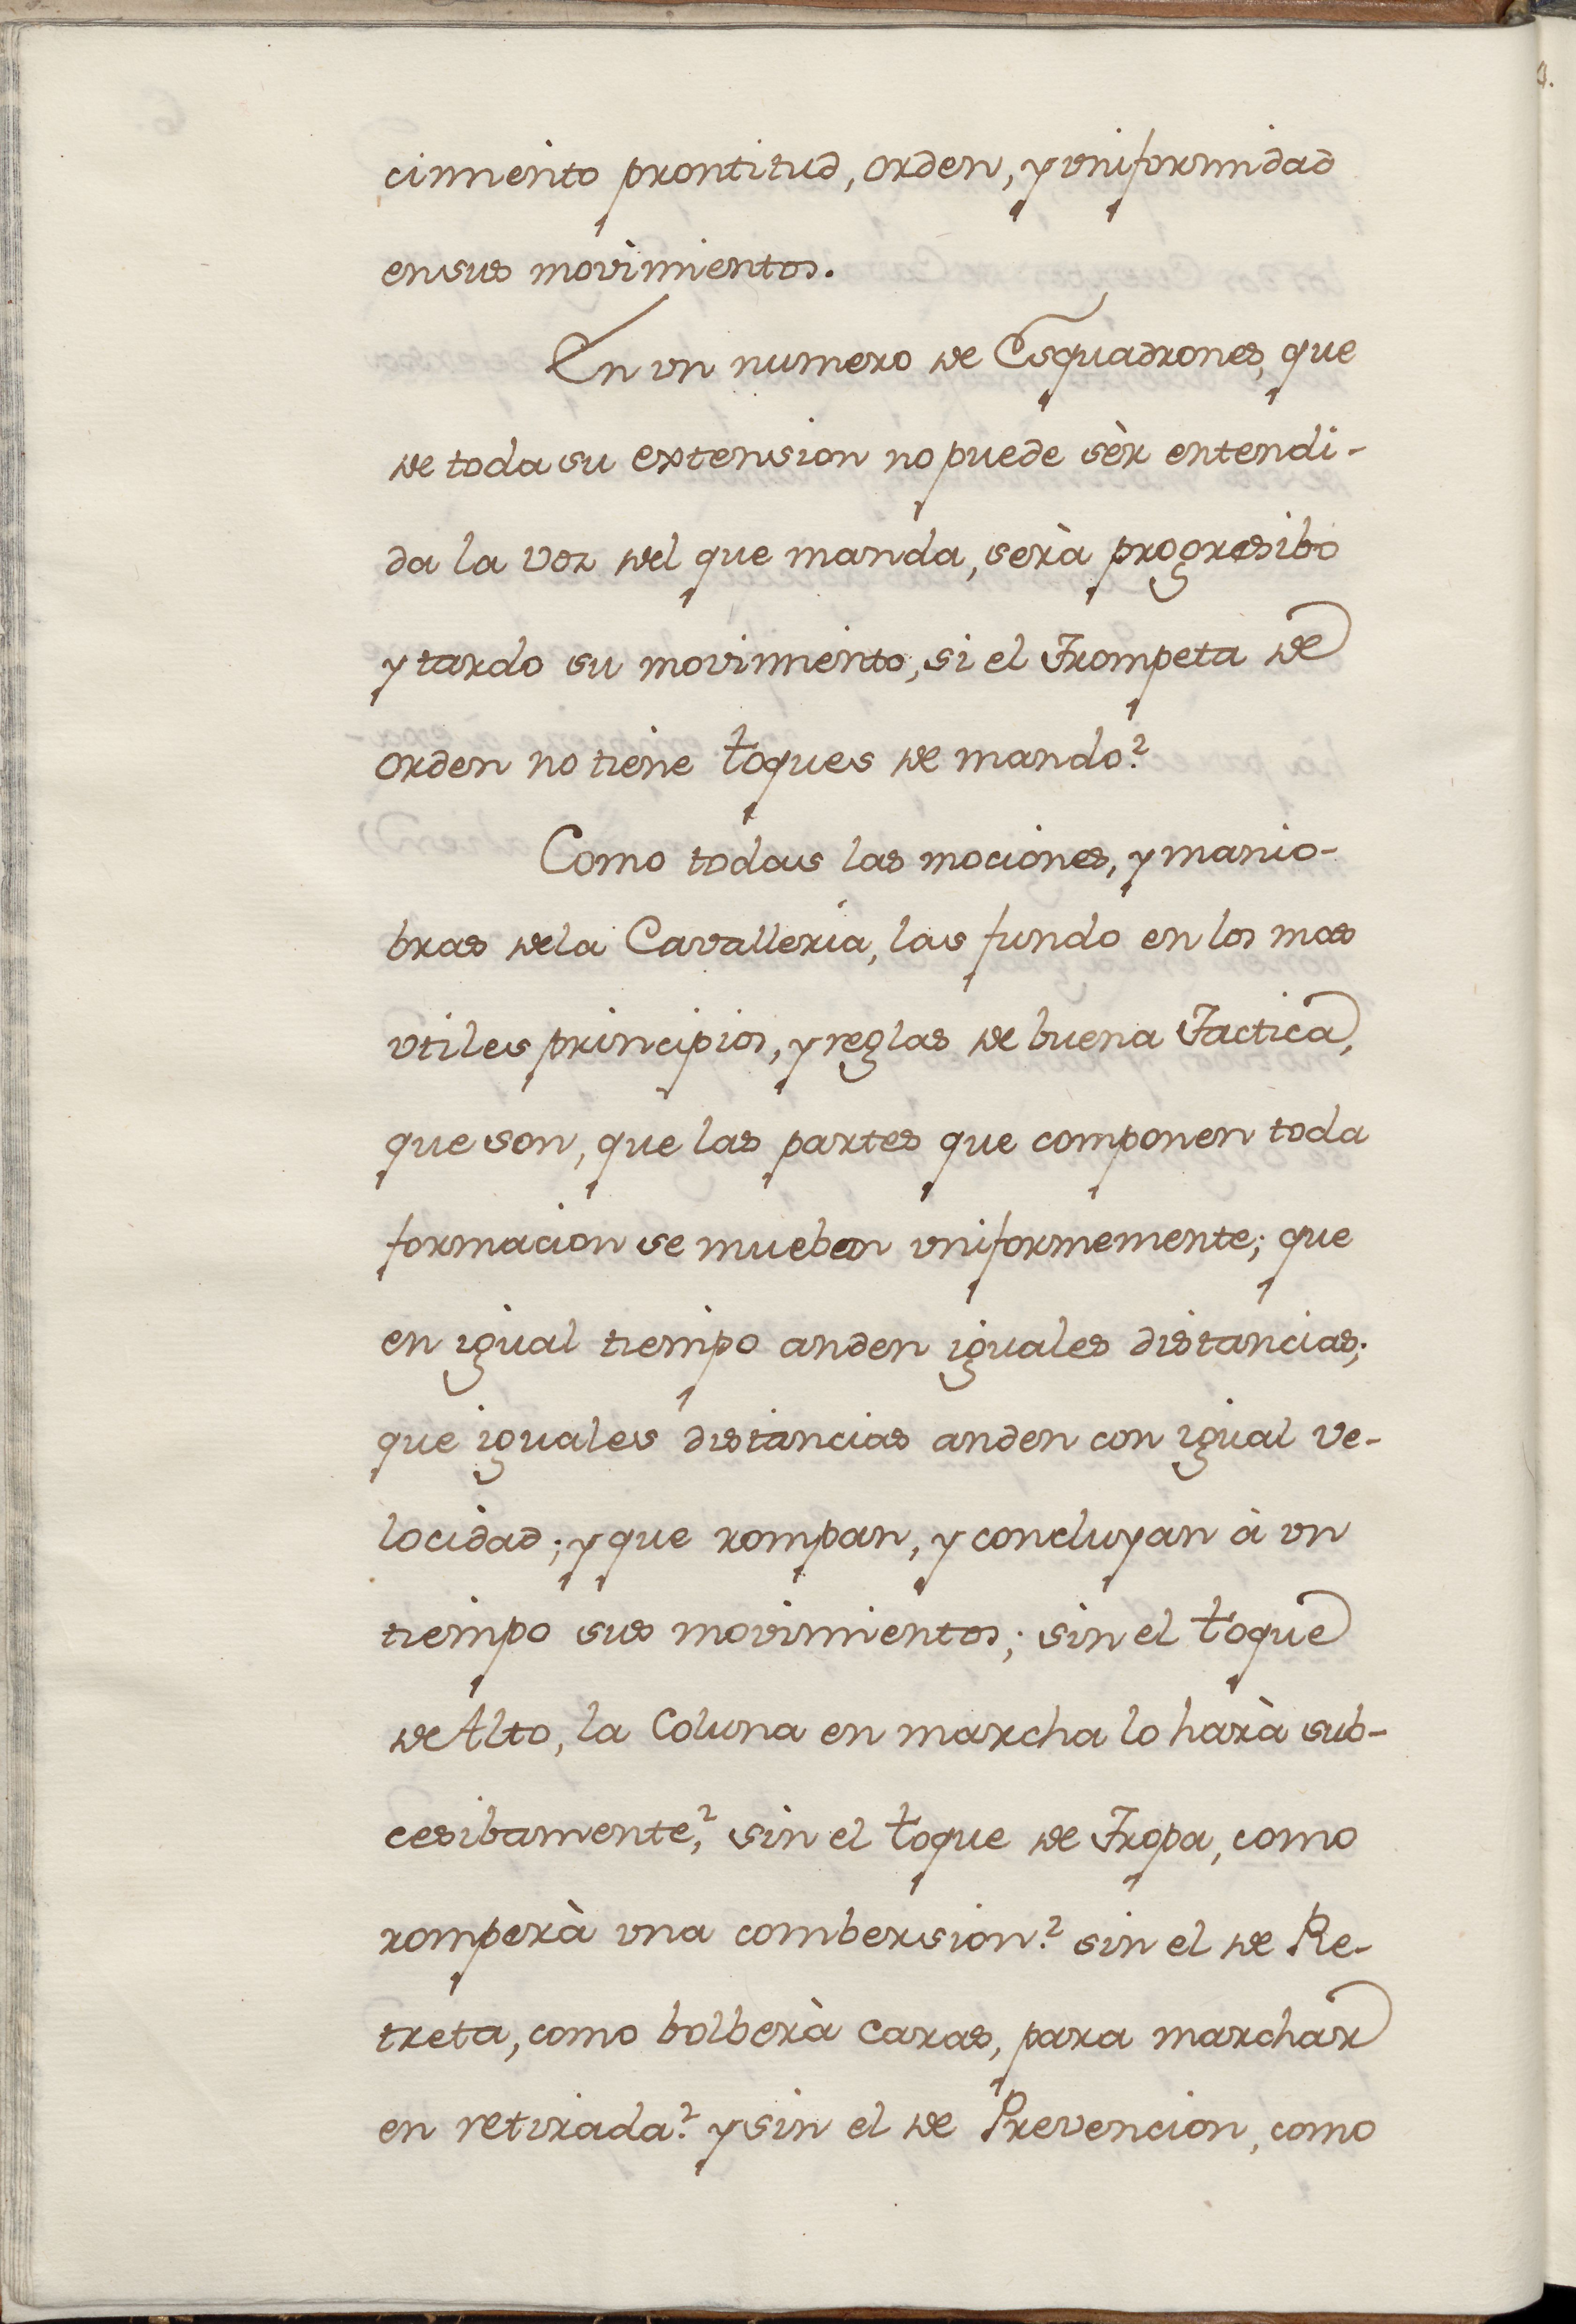 cimiento prontitud, orden, y vniformidad
en sus movimientos.
En vn numero de Esquadrones, que
de toda su extension no puede sèr entendi-
da la voz del que manda, serà progresibo
y tardo su movimiento, si el Trompeta de
orden no tiene toques de mando?
Como todas las mociones, y manio-
bras de la Cavalleria, las fundo en los mas
vtiles principios, y reglas de buena Tactica,
que son, que las partes que componen toda
formacion se mueben vniformemente; que
en igual tiempo anden iguales distancias;
que iguales distancias anden con igual ve-
locidad; y que rompan, y concluyan à vn
tiempo sus movimientos; sin el toque
de Alto, la Coluna en marcha lo harà sub-
cesibamente? sin el toque de Tropa, como
romperà vna combersion? sin el de Re-
treta, como bolberà caras, para marchar
en retirada? y sin el de Prevencion, como